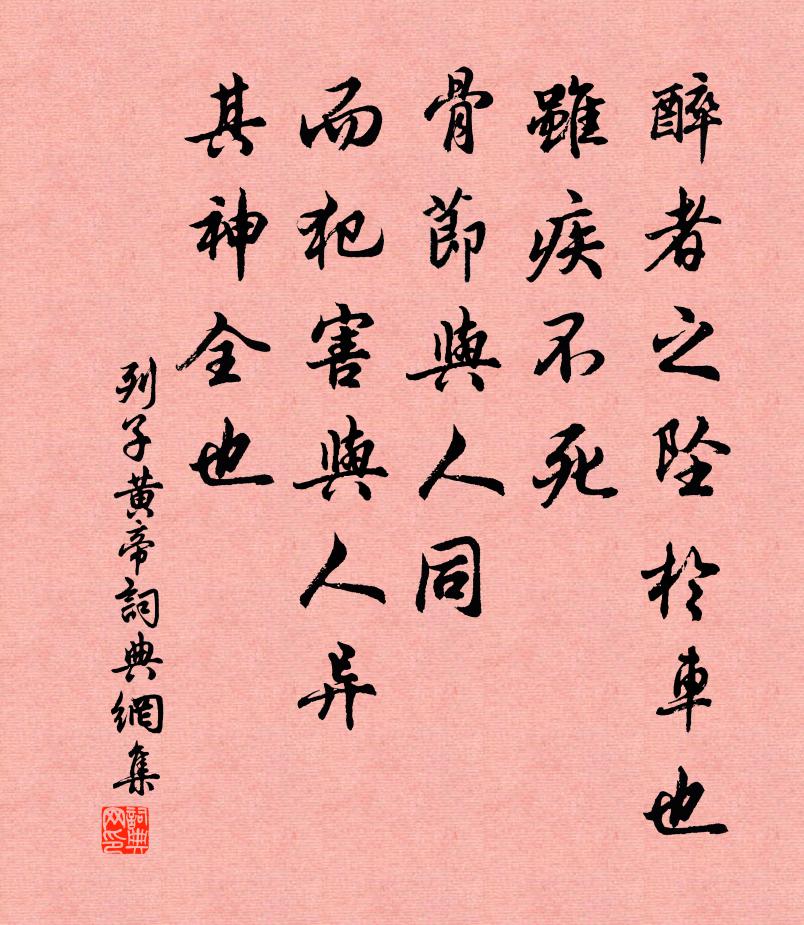 醉者之墜於車也
雖疾不死
骨節與人同
而犯害與人异
其神全也
列子黄帝詞典網集
詞典网印